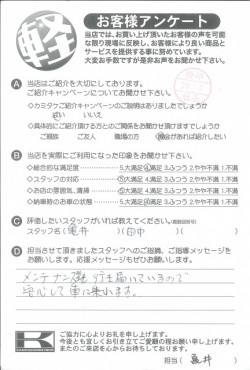 軽
お客様アンケート
当店では、お買い上げ頂いたお客様の声を可能
な限り現場に反映し、お客様により良い商品と
サービスを提供する事に努めています。
大変お手数ですが是非お声をお聞かせ下さい。
A 当店はご紹介を大切にしております。
ご紹介キャンペーンについてお聞かせ下さい。
◇カミタケご紹介キャンペーンのご説明はありましたでしょうか
はい いいえ
◇具体的にご紹介頂ける方とのご関係をお聞かせ頂けますでしょうか
ご親族 ご友人 職場の方 機会があれば紹介したい
B 当店を実際にご利用になった印象をお聞かせ下さい。
◇総合的な満足度 5.大満足 4.満足 3.ふつう 2.やや不満 1.不満
◇スタッフの対応 5.大満足 4.満足 3.ふつう 2.やや不満 1.不満
◇お店の雰囲気、清掃 5.大満足 4.満足 3.ふつう 2.やや不満 1.不満
◇納車時のお車の状態 5.大満足 4.満足 3.ふつう 2.やや不満 1.不満
C 評価したいスタッフがいれば教えてください。
スタッフ名( 亀井 )( 田中 )
D 担当させて頂きましたスタッフへのご指摘、ご指導メッセージを
お願いします。応援メッセージもぜひお聞かせ下さい。
メンテナンス等 行き届いているので
安心して車に乗れます。
K
ご協力に心よりお礼を申し上げます。
今後とも宜しくお引き立てご愛顧の程お願い申し上げます。
またのご来店を心からお待ちしております。
担当( 亀井 )